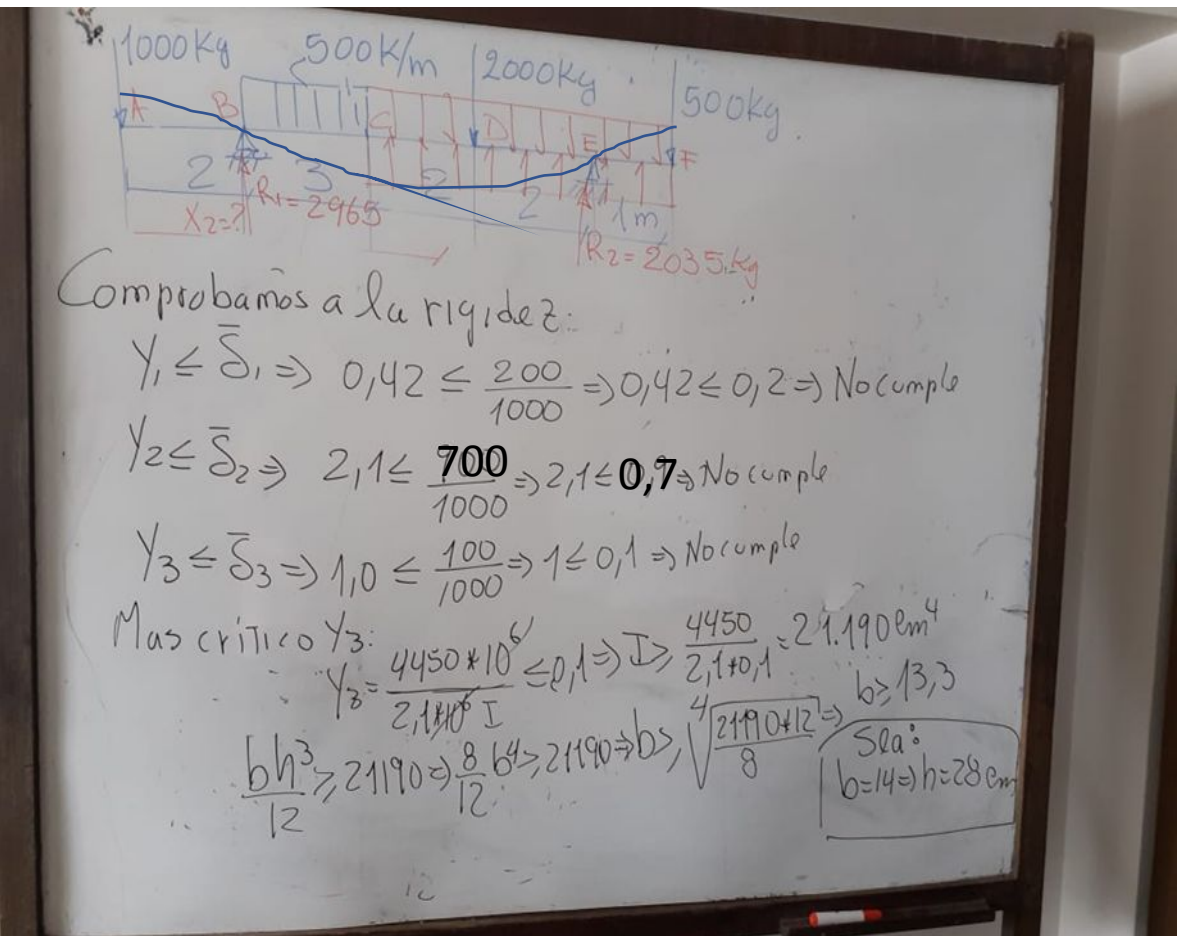 1000Kg 500K/m 2000Kg 500Kg
A B C D E F
2 3 2 2 1m
X₂=? R₁=2965 R₂=2035.kg
Comprobamos a la rigidez:
Y₁ ≤ δ̄₁ => 0,42 ≤ 200/1000 => 0,42 ≤ 0,2 => No cumple
Y₂ ≤ δ̄₂ => 2,1 ≤ 700/1000 => 2,1 ≤ 0,7 => No cumple
Y₃ ≤ δ̄₃ => 1,0 ≤ 100/1000 => 1 ≤ 0,1 => No cumple
Mas critico Y₃:
Y₃ = 4450*10⁶/2,1*10⁶ I ≤ 0,1 => I ≥ 4450/2,1*0,1 = 21.190 cm⁴
bh³/12 ≥ 21190 => 8/12 b⁴ ≥ 21190 => b ≥ ⁴√(21190*12/8) => b ≥ 13,3
Sea:
b=14 => h=28 cm